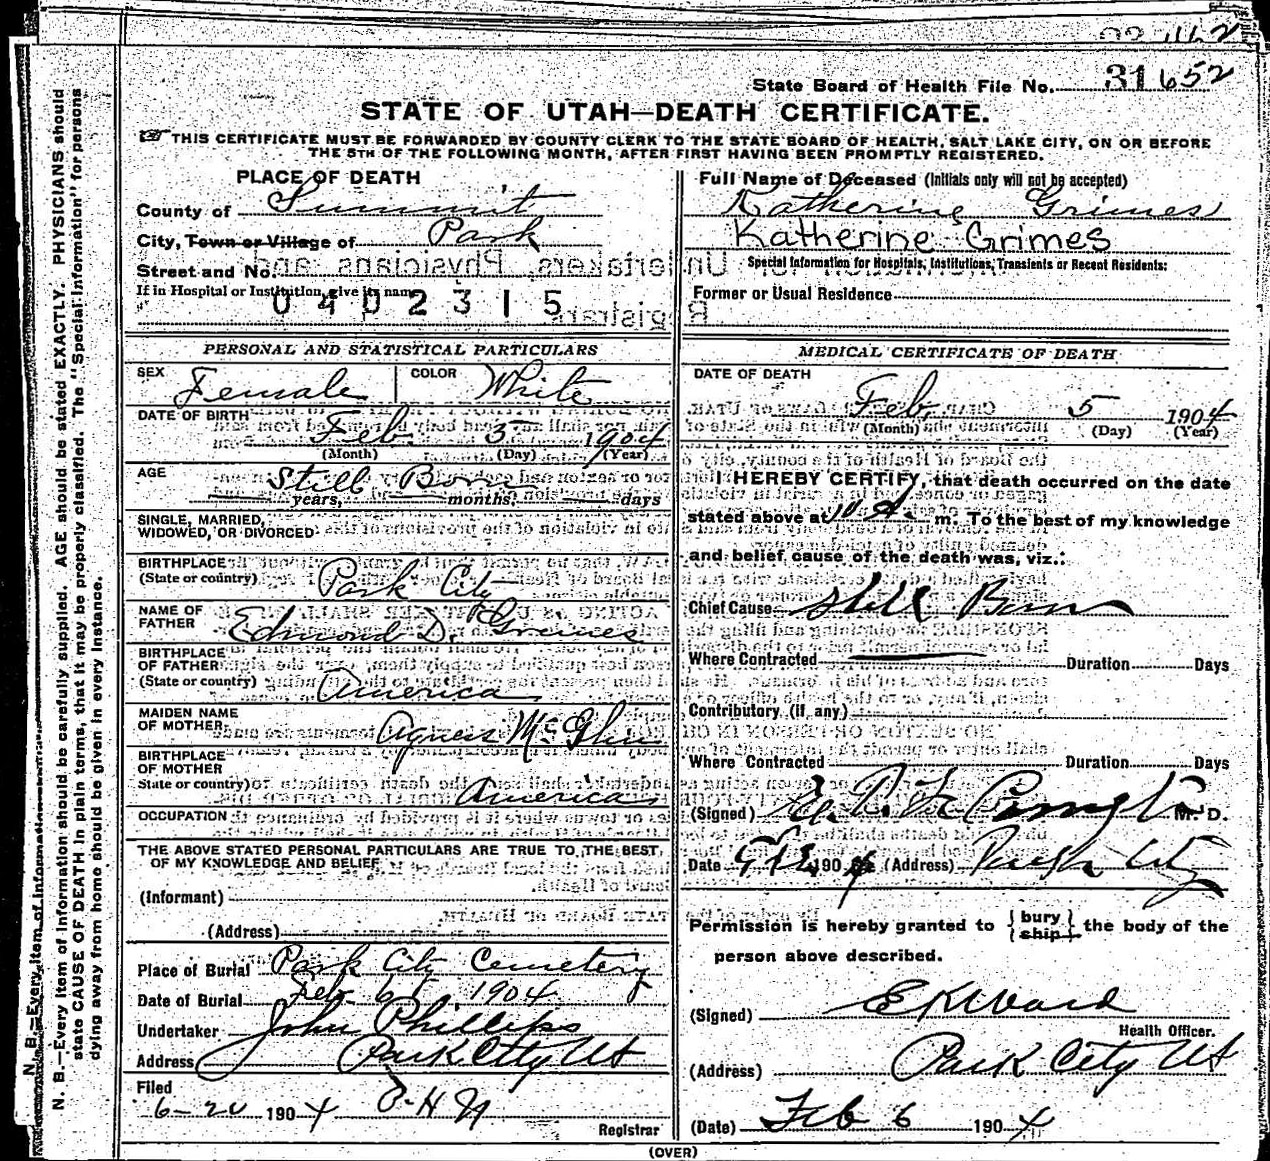 State Board of Health File No. 31652
STATE OF UTAH—DEATH CERTIFICATE.
THIS CERTIFICATE MUST BE FORWARDED BY COUNTY CLERK TO THE STATE BOARD OF HEALTH, SALT LAKE CITY, ON OR BEFORE
THE 5TH OF THE FOLLOWING MONTH, AFTER FIRST HAVING BEEN PROMPTLY REGISTERED.
N. B.—Every item of information should be carefully supplied. AGE should be stated EXACTLY. PHYSICIANS should
state CAUSE OF DEATH in plain terms, that it may be properly classified. The "Special Information" for persons
dying away from home should be given in every instance.
PLACE OF DEATH
County of Summit
City, Town or Village of Park
Street and No.
If in Hospital or Institution, give its name
0402315
PERSONAL AND STATISTICAL PARTICULARS
SEX Female COLOR White
DATE OF BIRTH Feb. 5 1904
(Month) (Day) (Year)
AGE Still Born
years, months, days
SINGLE, MARRIED,
WIDOWED, OR DIVORCED
BIRTHPLACE
(State or country) Park City
NAME OF
FATHER Edmond D. Grimes
BIRTHPLACE
OF FATHER
(State or country) America
MAIDEN NAME
OF MOTHER Agnes
BIRTHPLACE
OF MOTHER
State or country) America
OCCUPATION
THE ABOVE STATED PERSONAL PARTICULARS ARE TRUE TO THE BEST
OF MY KNOWLEDGE AND BELIEF
(Informant)
(Address)
Place of Burial Park City Cemetery
Date of Burial Feb 6 1904
Undertaker John Phillips
Address Park City Ut
Filed
6-20 1904
Registrar
Full Name of Deceased (Initials only will not be accepted)
Katherine Grimes
Katherine Grimes
Special Information for Hospitals, Institutions, Transients or Recent Residents:
Former or Usual Residence
MEDICAL CERTIFICATE OF DEATH
DATE OF DEATH
Feb. 5 1904
(Month) (Day) (Year)
I HEREBY CERTIFY, that death occurred on the date
stated above at 10 A. m. To the best of my knowledge
and belief cause of the death was, viz.:
Chief Cause Still Born
Where Contracted Duration Days
Contributory (if any)
Where Contracted Duration Days
(Signed) M. D.
Date 1904 (Address) Park City
Permission is hereby granted to {bury ship} the body of the
person above described.
(Signed) E K Ward
Health Officer.
(Address) Park City Ut
(Date) Feb 6 1904
(OVER)